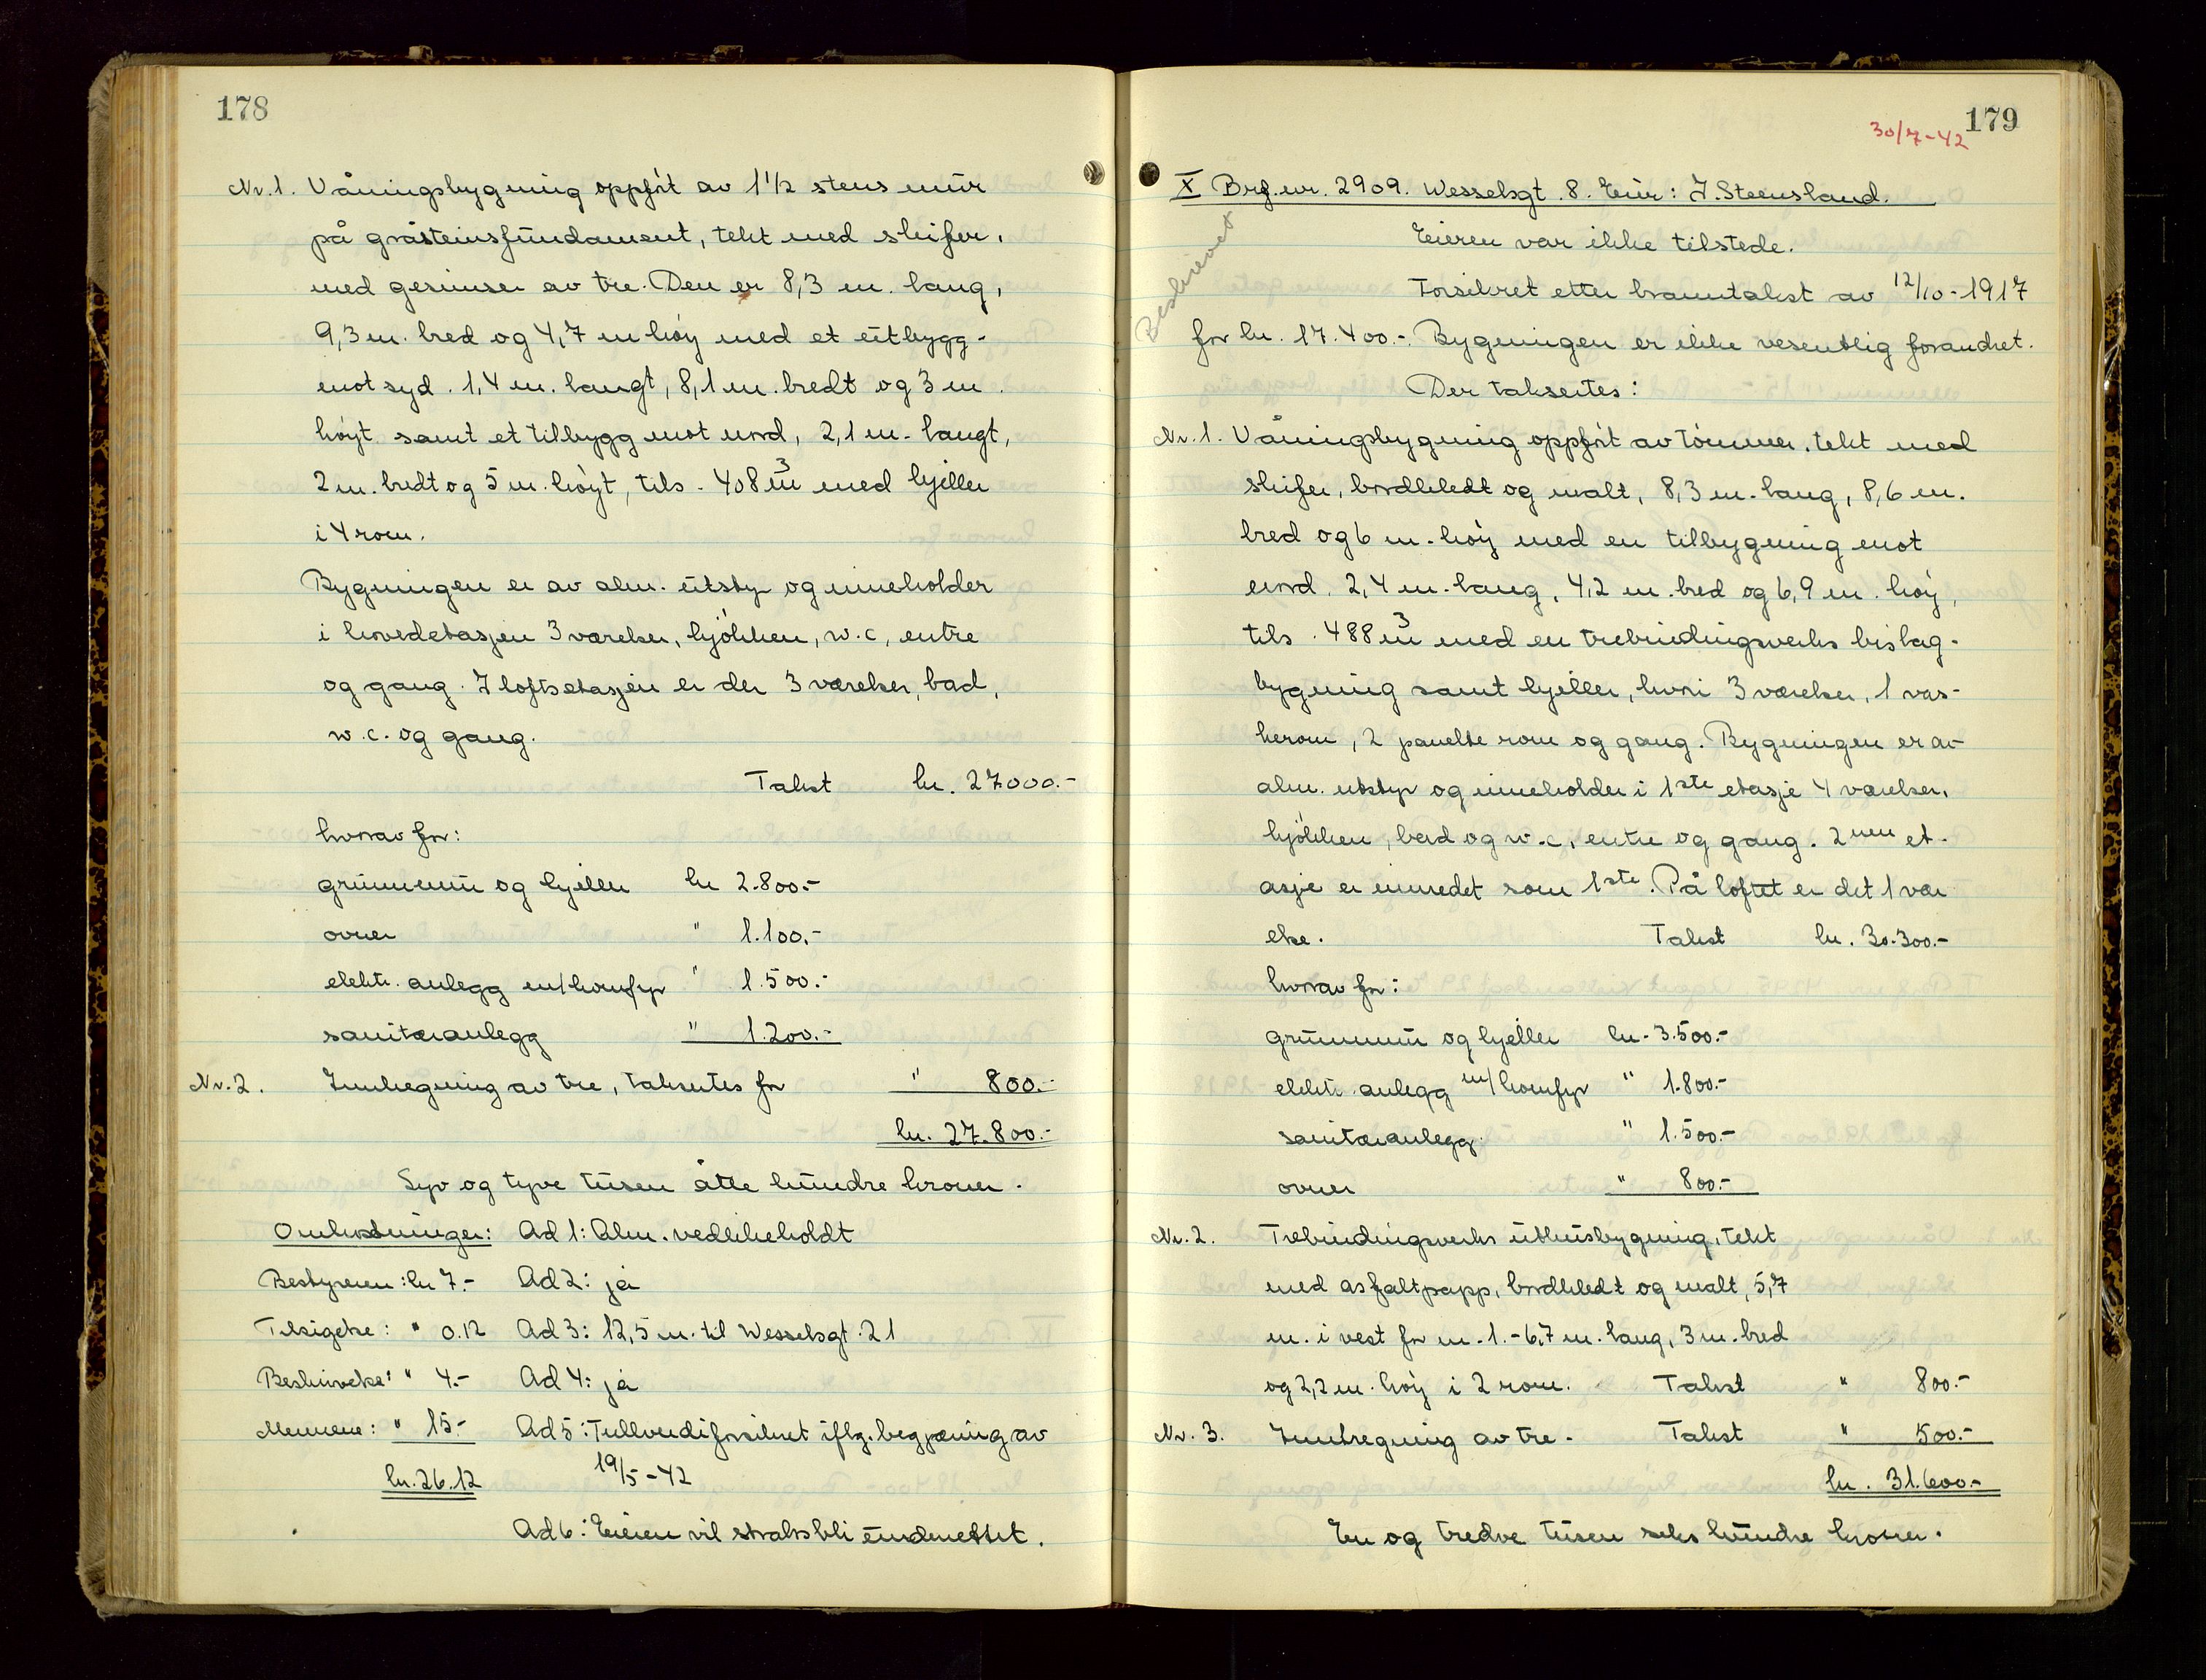 178
Nr. 1. Våningsbygning oppført av 1 1/2 stens mur
på gråsteinsfundament, tekt med skifer,
med gesimser av tre. Den er 8,3 m. lang,
9,3 m. bred og 4,7 m høy med et utbygg
mot syd. 1,4 m. langt, 8,1 m. bredt og 3 m.
høyt samt et tilbygg mot nord, 2,1 m. langt,
2 m. bredt og 5 m. høyt, tils. 408 m³ med kjeller
i 4 rom.
Bygningen er av alm. utstyr og inneholder
i hovedetasjen 3 værelser, kjøkken, w.c, entre
og gang. I loftsetasjen er der 3 værelser, bad,
w.c. og gang.
Takst kr. 27000.-
hvorav for:
grunnmur og kjeller kr 2.800.-
ovner " 1.100.-
elektr. anlegg m/komfyr " 1.500.-
sanitæranlegg " 1.200.-
Nr. 2. Innhegning av tre, takseres for " 800.-
kr. 27.800.-
Syv og tyve tusen åtte hundre kroner.
Omkostninger: Ad 1: Alm. vedlikeholdt
Bestyreren: kr 7.- Ad 2: ja
Tilsigelse: " 0.12 Ad 3: 12,5 m. til Wesselsgt. 21
Beskrivelse: " 4.- Ad 4: ja
Mennene: " 15.- Ad 5: Fullverdiforsikret iflg. begjæring av
kr. 26.12 19/5-42
Ad 6: Eieren vil straks bli underrettet.
179
30/7-42
X Brf. nr. 2909. Wesselsgt. 8. Eier: J. Steensland.
Beskrevet
Eieren var ikke tilstede.
Forsikret etter branntakst av 12/10-1917
for kr. 17.400.-. Bygningen er ikke vesentlig forandret.
Der takseres:
Nr. 1. Våningsbygning oppført av tømmer, tekt med
skifer, bordkledt og malt, 8,3 m. lang, 8,6 m.
bred og 6 m. høy med en tilbygning mot
nord. 2,4 m. lang, 4,2 m. bred og 6,9 m. høy,
tils. 488 m³ med en trebindingsverks bislag-
bygning samt kjeller, hvori 3 værelser, 1 vas-
kerom, 2 panelte rom og gang. Bygningen er av
alm. utstyr og inneholder i 1ste etasje 4 værelser,
kjøkken, bad og w.c, entre og gang. 2nen et-
asje er innredet som 1ste. På loftet er det 1 vær
else. Takst kr. 30.300.-
hvorav for:
grunnmur og kjeller kr. 3.500.-
elektr. anlegg m/komfyr " 1.800.-
sanitæranlegg " 1.500.-
ovner " 800.-
Nr. 2. Trebindingsverks uthusbygning, tekt
med asfaltpapp, bordkledt og malt, 5,7
m. i vest for nr. 1. - 6,7 m. lang, 3 m. bred
og 2,2 m. høy i 2 rom. Takst " 800.-
Nr. 3. Innhegning av tre. Takst " 500.-
kr. 31.600.-
En og tredve tusen seks hundre kroner.